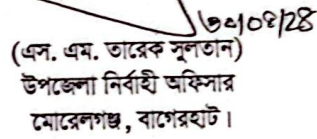 ৩০/০৪/২৪
(এস. এম. তারেক সুলতান)
উপজেলা নির্বাহী অফিসার
মোরেলগঞ্জ, বাগেরহাট।